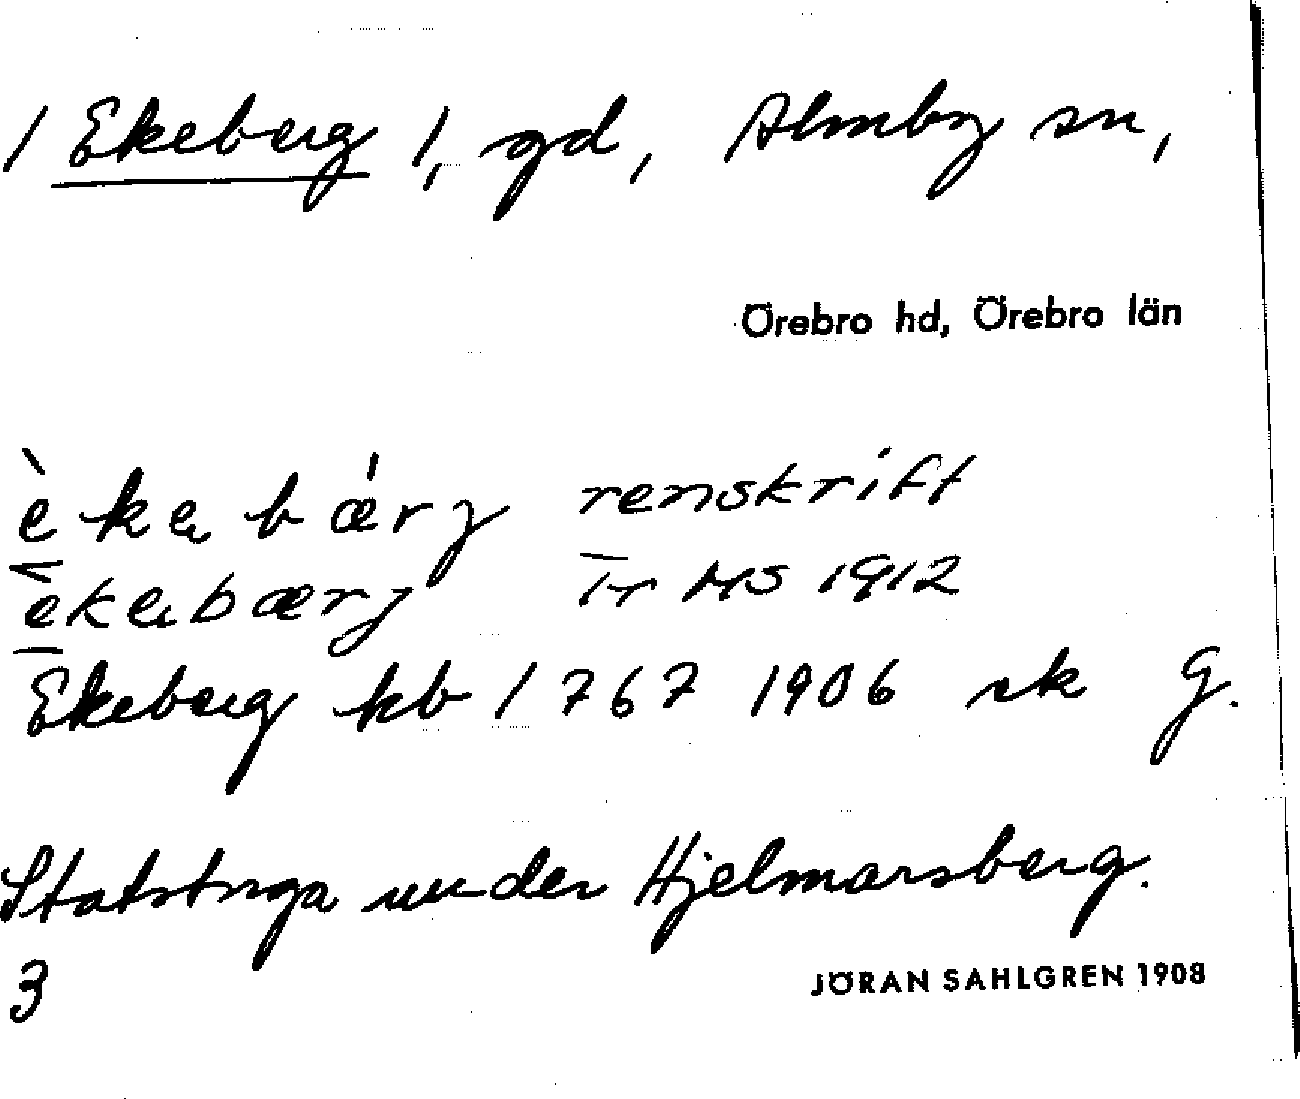 / Ekeberg 1, gd, Almby sn,
Örebro hd, Örebro län
èkebǽrj renskrift
ēkebærj Tr MS 1912
Ekeberg kb 1767 1906 sk G.
Statstorga under Hjelmarsberg.
3
JÖRAN SAHLGREN 1908